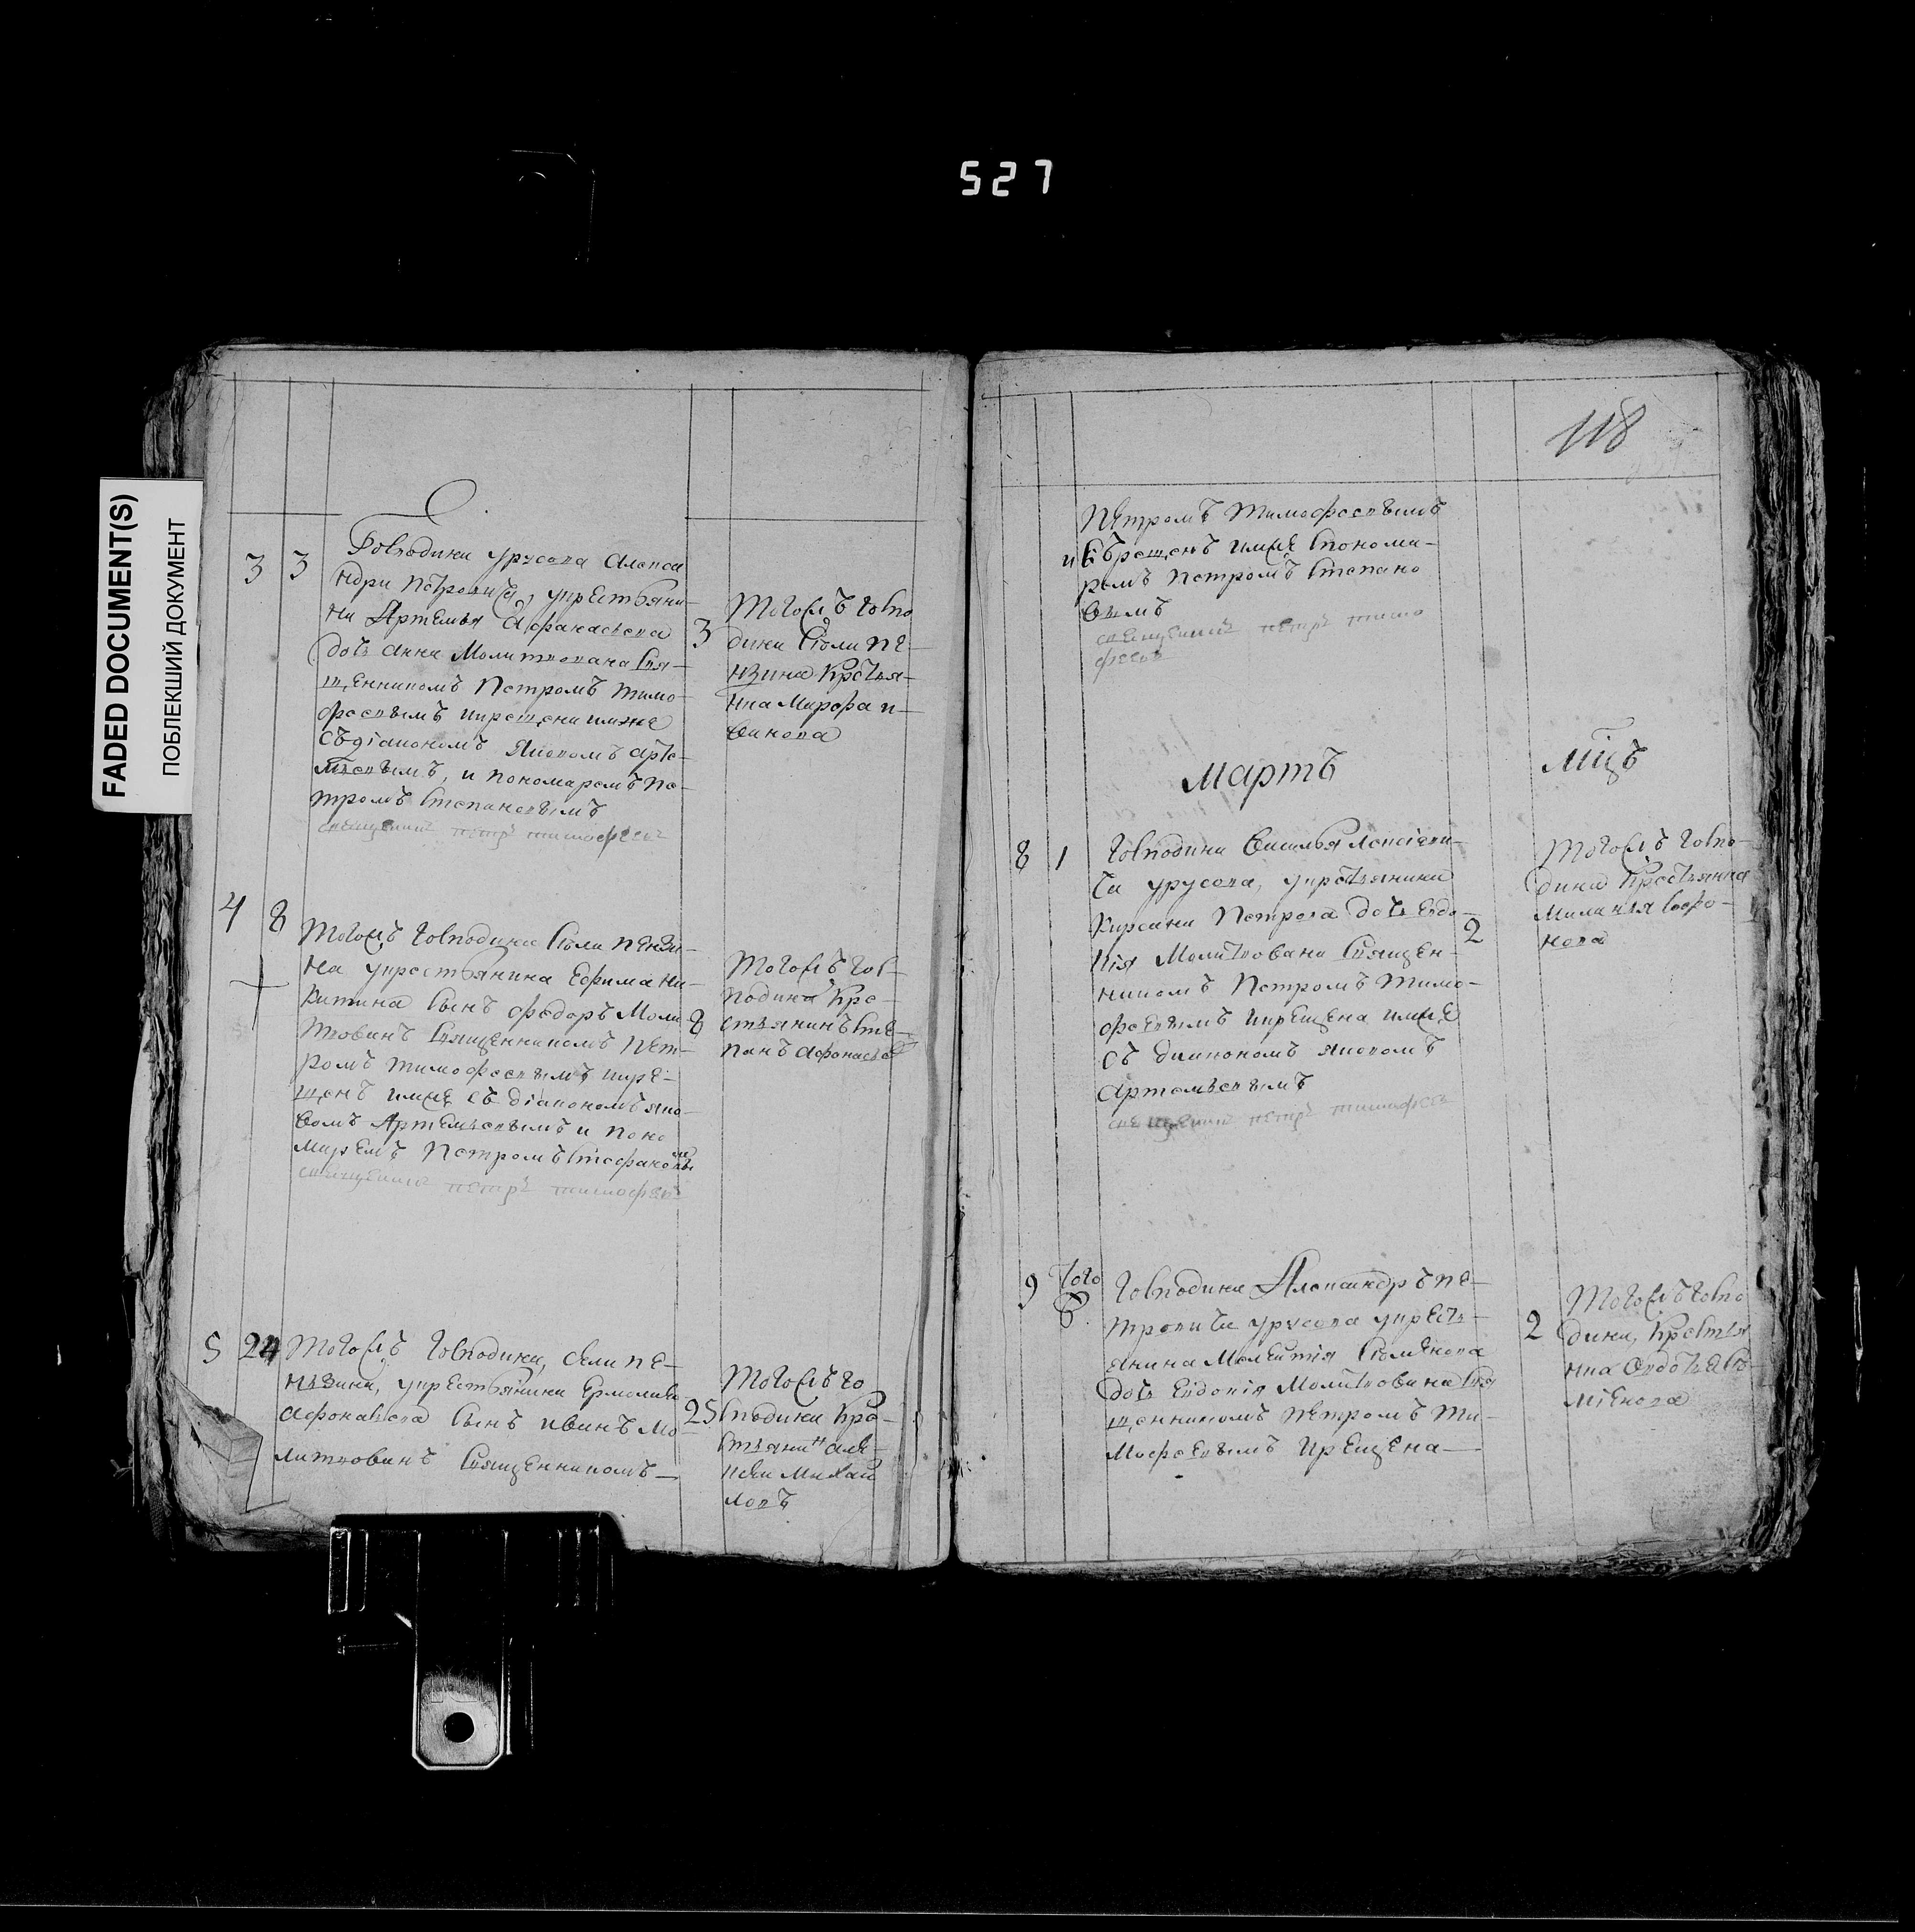 527
FADED DOCUMENT(S)
ПОБЛЕКШИЙ ДОКУМЕНТ
3 3
Господина Урусова Алекса
ндра Петровича, укрестьяни
на Артемья Афанасьева
дочь Анна Молитвована Свя
щенникомъ Петромъ Тимо
феевымъ икрещена имже
съ діакономъ Яковомъ Арте
мьевымъ, и пономаремъ Пе
тромъ Степановымъ
священникъ петръ тимофеевъ
3
Тогожъ Госпо
дина Села Пе
нзина Крестья
нка Марфа И
ванова
4 8
Тогожъ Господина Села Пензи
на укрестьянина Ефима Ни
китина Сынъ Федоръ Моли
твовинъ Священникомъ Пет
ромъ Тимофеевымъ икре
щенъ имже съ діакономъ Яко
вомъ Артемьевымъ и поно
маремъ Петромъ Стефановы
мъ
священникъ петръ тимофеевъ
8
Тогожъ Гос
подина Кре
стьянинъ Сте
панъ Афонасьев
5 24
Тогожъ Господина, Села Пе
нзина, укрестьянина Ермолая
Афонасьева Сынъ Иванъ Мо
литвовинъ Священникомъ
25
Тогожъ Го
сподина Кре
стьянинъ Але
ксей Михай
ловъ
118
Петромъ Тимофеевымъ
и Крещенъ имже Спонома
ремъ Петромъ Степано
вымъ
священникъ петръ тимо
феевъ
Мартъ
Мцъ
8 1
Господина Василья Алексееви
ча Урусова, укрестьянина
Кирсана Петрова дочь Евдо
кія Молитвована Священ
никомъ Петромъ Тимо
феевымъ икрещена имже
съ диакономъ Яковомъ
Артемьевымъ
священникъ петръ тимофеев
2
Тогожъ Госпо
дина Крестьянка
Маланья Софо
нова
9 Того
Господина Александръ Пе
тровича Урусова укресть
янина Мелентія Семенова
дочь Евдокія Молитвована Свя
щенникомъ Петромъ Ти
мофеевымъ Крещена
2
Тогожъ Госпо
дина, Крестья
нка Овдотья Се
міенова